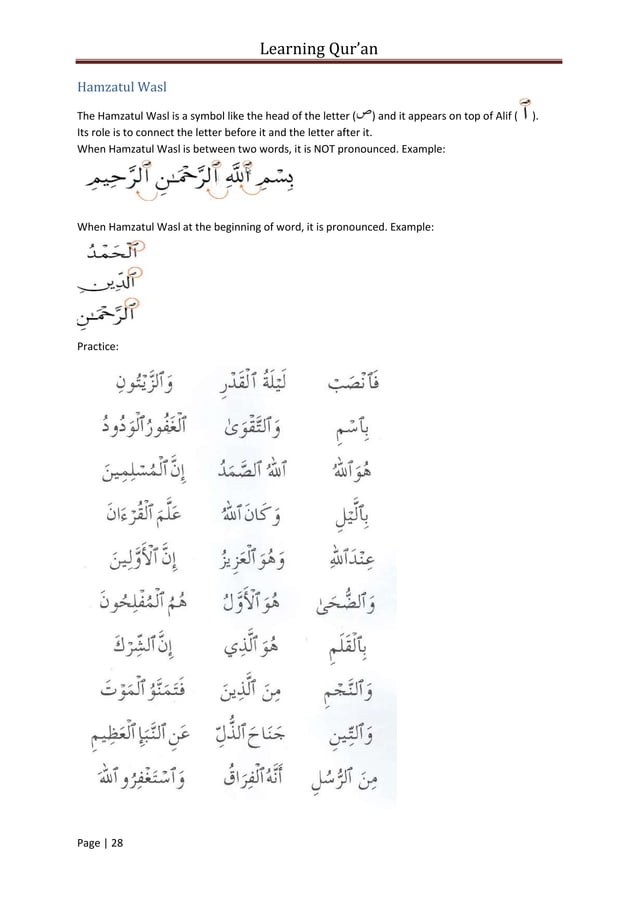 Learning Qur’an
Hamzatul Wasl
The Hamzatul Wasl is a symbol like the head of the letter (ص) and it appears on top of Alif ( ٱ ).
Its role is to connect the letter before it and the letter after it.
When Hamzatul Wasl is between two words, it is NOT pronounced. Example:
بِسْمِ ٱللَّهِ ٱلرَّحْمَـٰنِ ٱلرَّحِيمِ
When Hamzatul Wasl at the beginning of word, it is pronounced. Example:
ٱلْحَمْدُ
ٱلدِّينِ
ٱلرَّحْمَـٰنِ
Practice:
فَٱنْصَبْ لَيْلَةُ ٱلْقَدْرِ وَٱلزَّيْتُونِ
بِٱسْمِ وَٱلتَّقْوَىٰ ٱلْغَفُورُ ٱلْوَدُودُ
هُوَ ٱللَّهُ ٱللَّهُ ٱلصَّمَدُ إِنَّ ٱلْمُسْلِمِينَ
بِٱلَّيْلِ وَكَانَ ٱللَّهُ عَلَّمَ ٱلْقُرْءَانَ
عِنْدَ ٱللَّهِ وَهُوَ ٱلْعَزِيزُ إِنَّ ٱلْأَوَّلِينَ
وَٱلضُّحَىٰ هُوَ ٱلْأَوَّلُ هُمُ ٱلْمُفْلِحُونَ
بِٱلْقَلَمِ هُوَ ٱلَّذِي إِنَّ ٱلشِّرْكَ
وَٱلنَّجْمِ مِنَ ٱلَّذِينَ فَتَمَنَّوُ ٱلْمَوْتَ
وَٱلتِّينِ جَنَاحَ ٱلذُّلِّ عَنِ ٱلنَّبَإِ ٱلْعَظِيمِ
مِنَ ٱلرُّسُلِ أَنَّهُ ٱلْفِرَاقُ وَٱسْتَغْفِرُو ٱللَّهَ
Page | 28